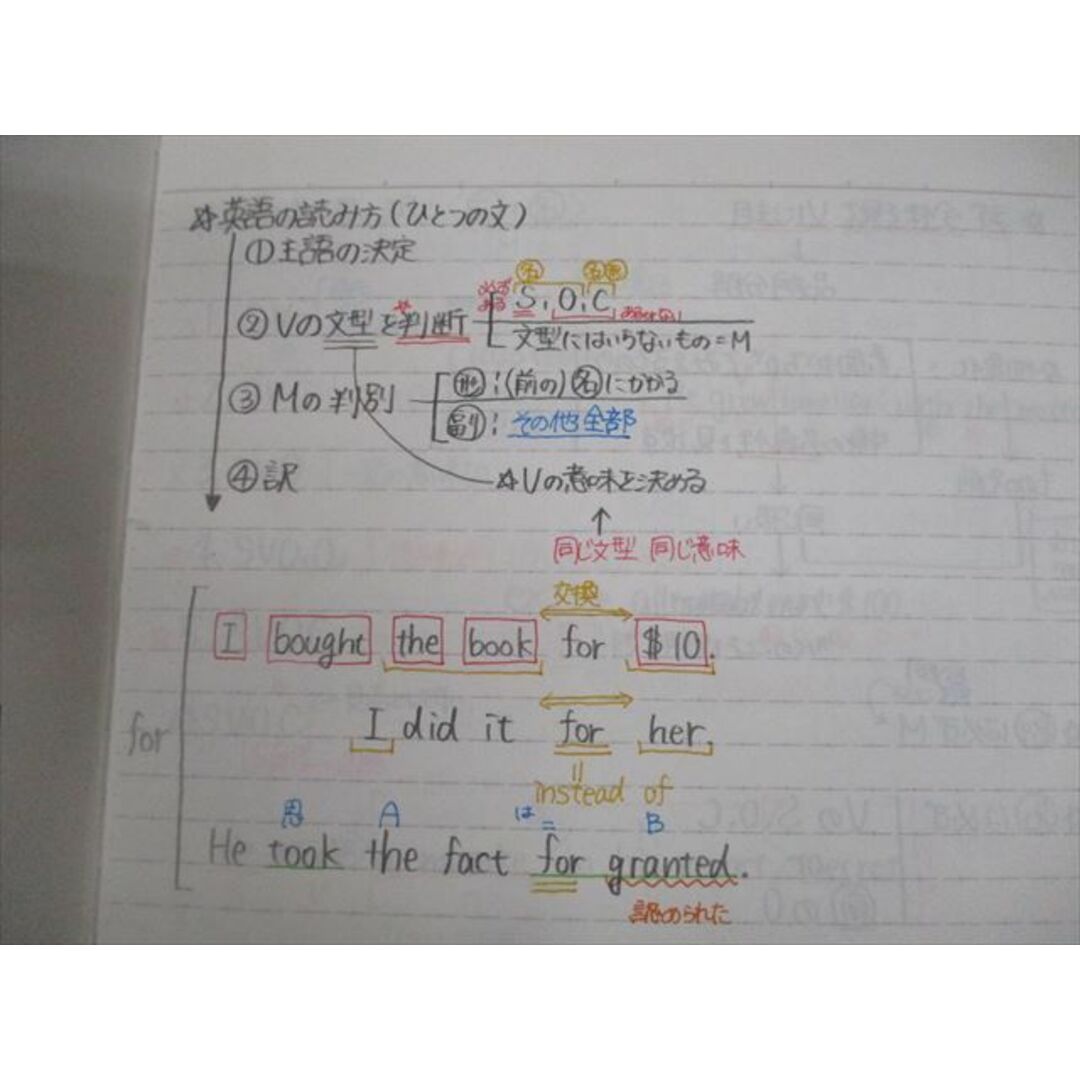 ☆英語の読み方(ひとつの文)
①主語の決定
名 名形
必ずある S, O, C
②Vの文型を判断
文型にはいらないもの=M
③Mの判別
形:(前の)名にかかる
副:その他全部
④訳
☆Vの意味を決める
↑
同じ文型 同じ意味
交換
I bought the book for $10.
for
I did it for her.
instead of
思 A は= B
He took the fact for granted.
認められた